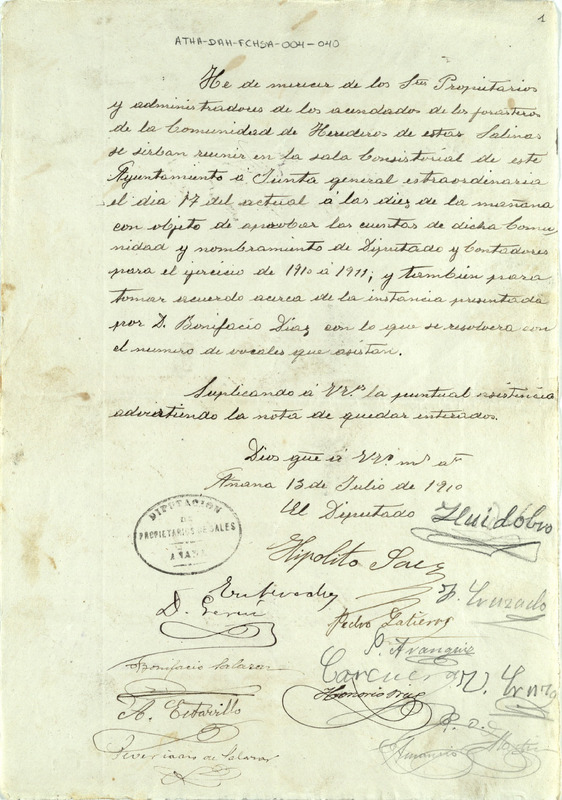 1
ATHA-DAH-FCHSA-004-040
He de merecer de los Sres Propietarios
y administradores de los acendados de los forasteros
de la Comunidad de Herederos de estas Salinas
se sirban reunir en la sala Consistorial de este
Ayuntamiento á Junta general estraordinaria
el dia 17 del actual á las diez de la mañana
con objeto de aprobar las cuentas de dicha Comu-
nidad y nombramiento de Diputado y Contadores
para el ejercicio de 1910 á 1911; y también para
tomar acuerdo acerca de la instancia presentada
por D. Bonifacio Diaz con lo que se resolvera con
el numero de vocales que asistan.
Suplicando á VV.s la puntual asistencia
advirtiendo la nota de quedar enterados.
Dios gue á VV.s ms as
Añana 13 de Julio de 1910
El Diputado Huidobro
DIPUTACIÓN
DE
PROPIETARIOS DE SALES
AÑANA
Hipolito Saez
Pedro Gutierrez
P. Aranguiz
Bonifacio Salazar
Carcuera
Honorio
A. Estavillo
Severiano de Salazar
Amancio